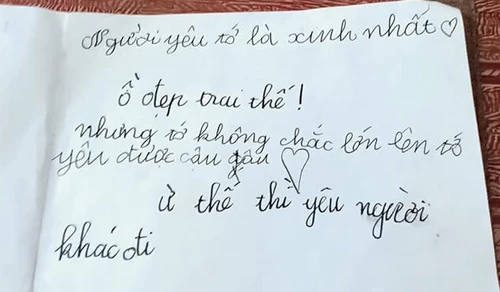 Người yêu tớ là xinh nhất ♡
ồ đẹp trai thế!
nhưng tớ không chắc lớn lên tớ
yêu được cậu đâu ♡
ừ thế thì yêu người
khác đi